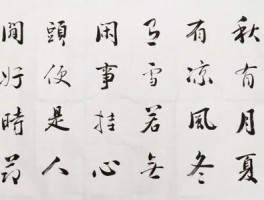 秋有月夏
有凉風冬
有雪若無
闲事挂心
頭便是人
間好時節